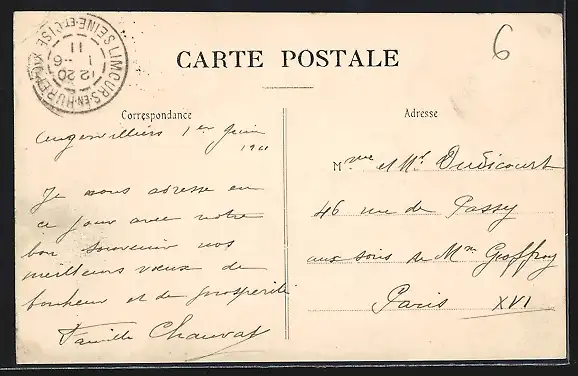 CARTE POSTALE
6
LIMOURS-EN-HUREPOIX
SEINE-ET-OISE
12 20
1 - 6
11
Correspondance
Adresse
Angervilliers 1er Juin
1911
Je vous adresse en
ce jour avec notre
bon souvenir nos
meilleurs vœux de
bonheur et de prospérité
Famille Chauvat
Mme et Mr Dudicourt
46 rue de Passy
aux soins de Mme Geoffroy
Paris XVI